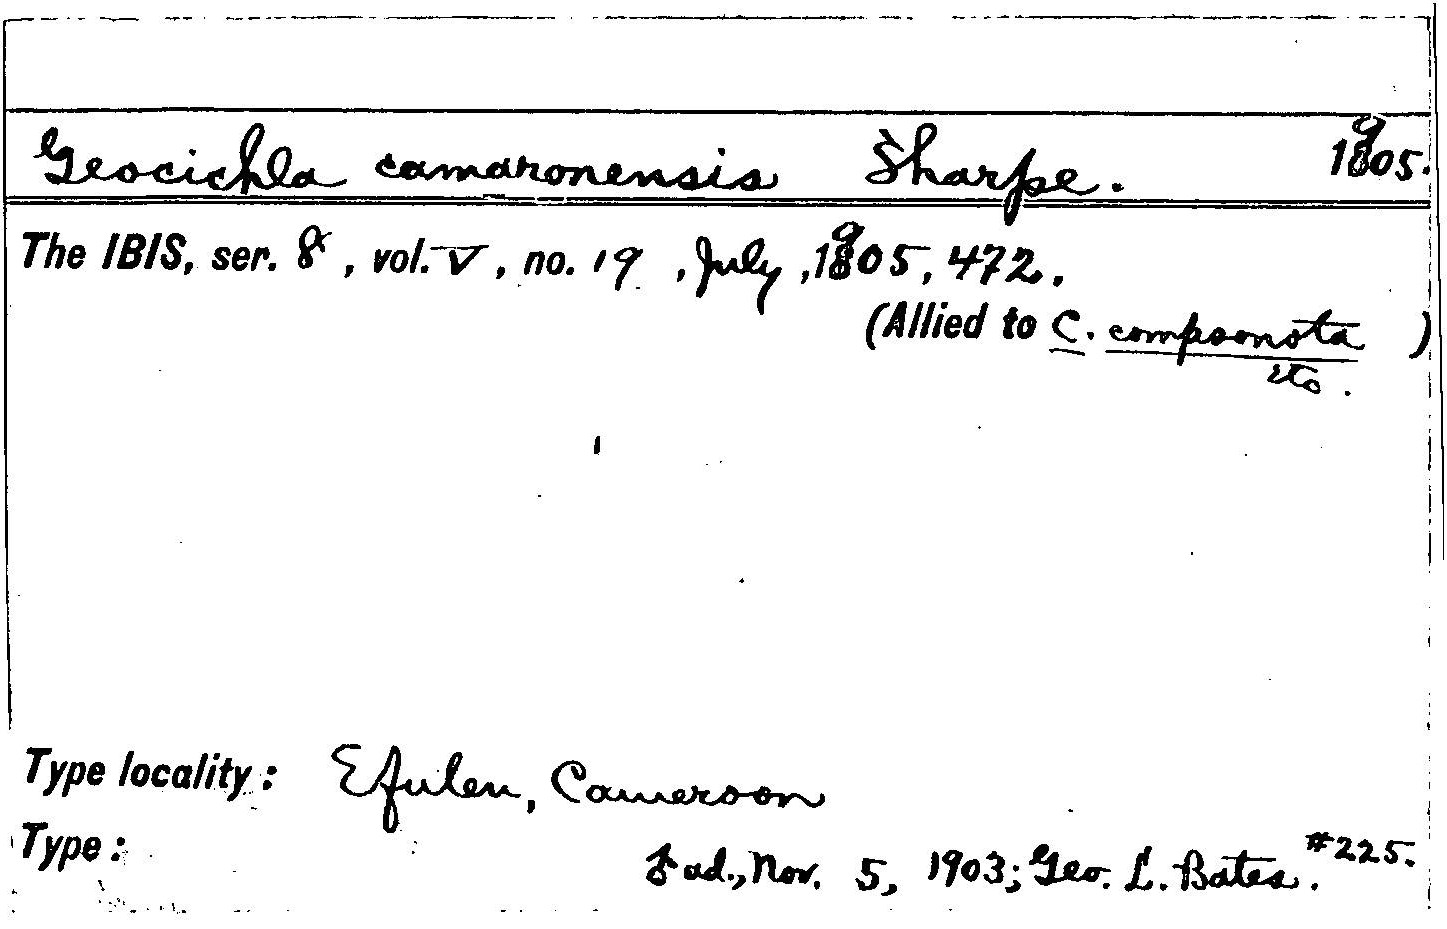 Geocichla camaronensis Sharpe. 1905.
The IBIS, ser. 8, vol. V, no. 19, July, 1905, 472.
(Allied to C. compsonota etc.)
Type locality: Efulen, Cameroon
Type: ad., Nov. 5, 1903; Geo. L. Bates. #225.